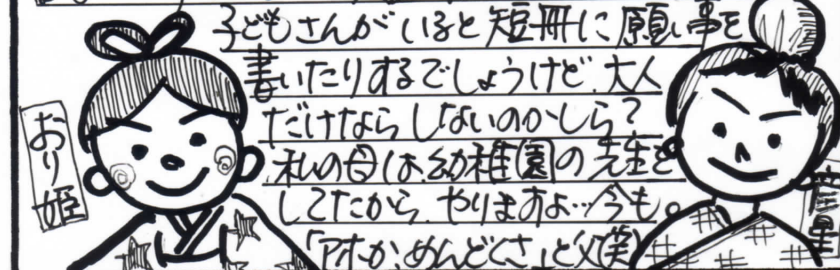 子どもさんがいると短冊に願い事を
書いたりするでしょうけど、大人
だけならしないのかしら?
私の母は、幼稚園の先生を
してたから、やりますよ…今も。
「アホか、めんどくさ」と父(笑)
おり姫